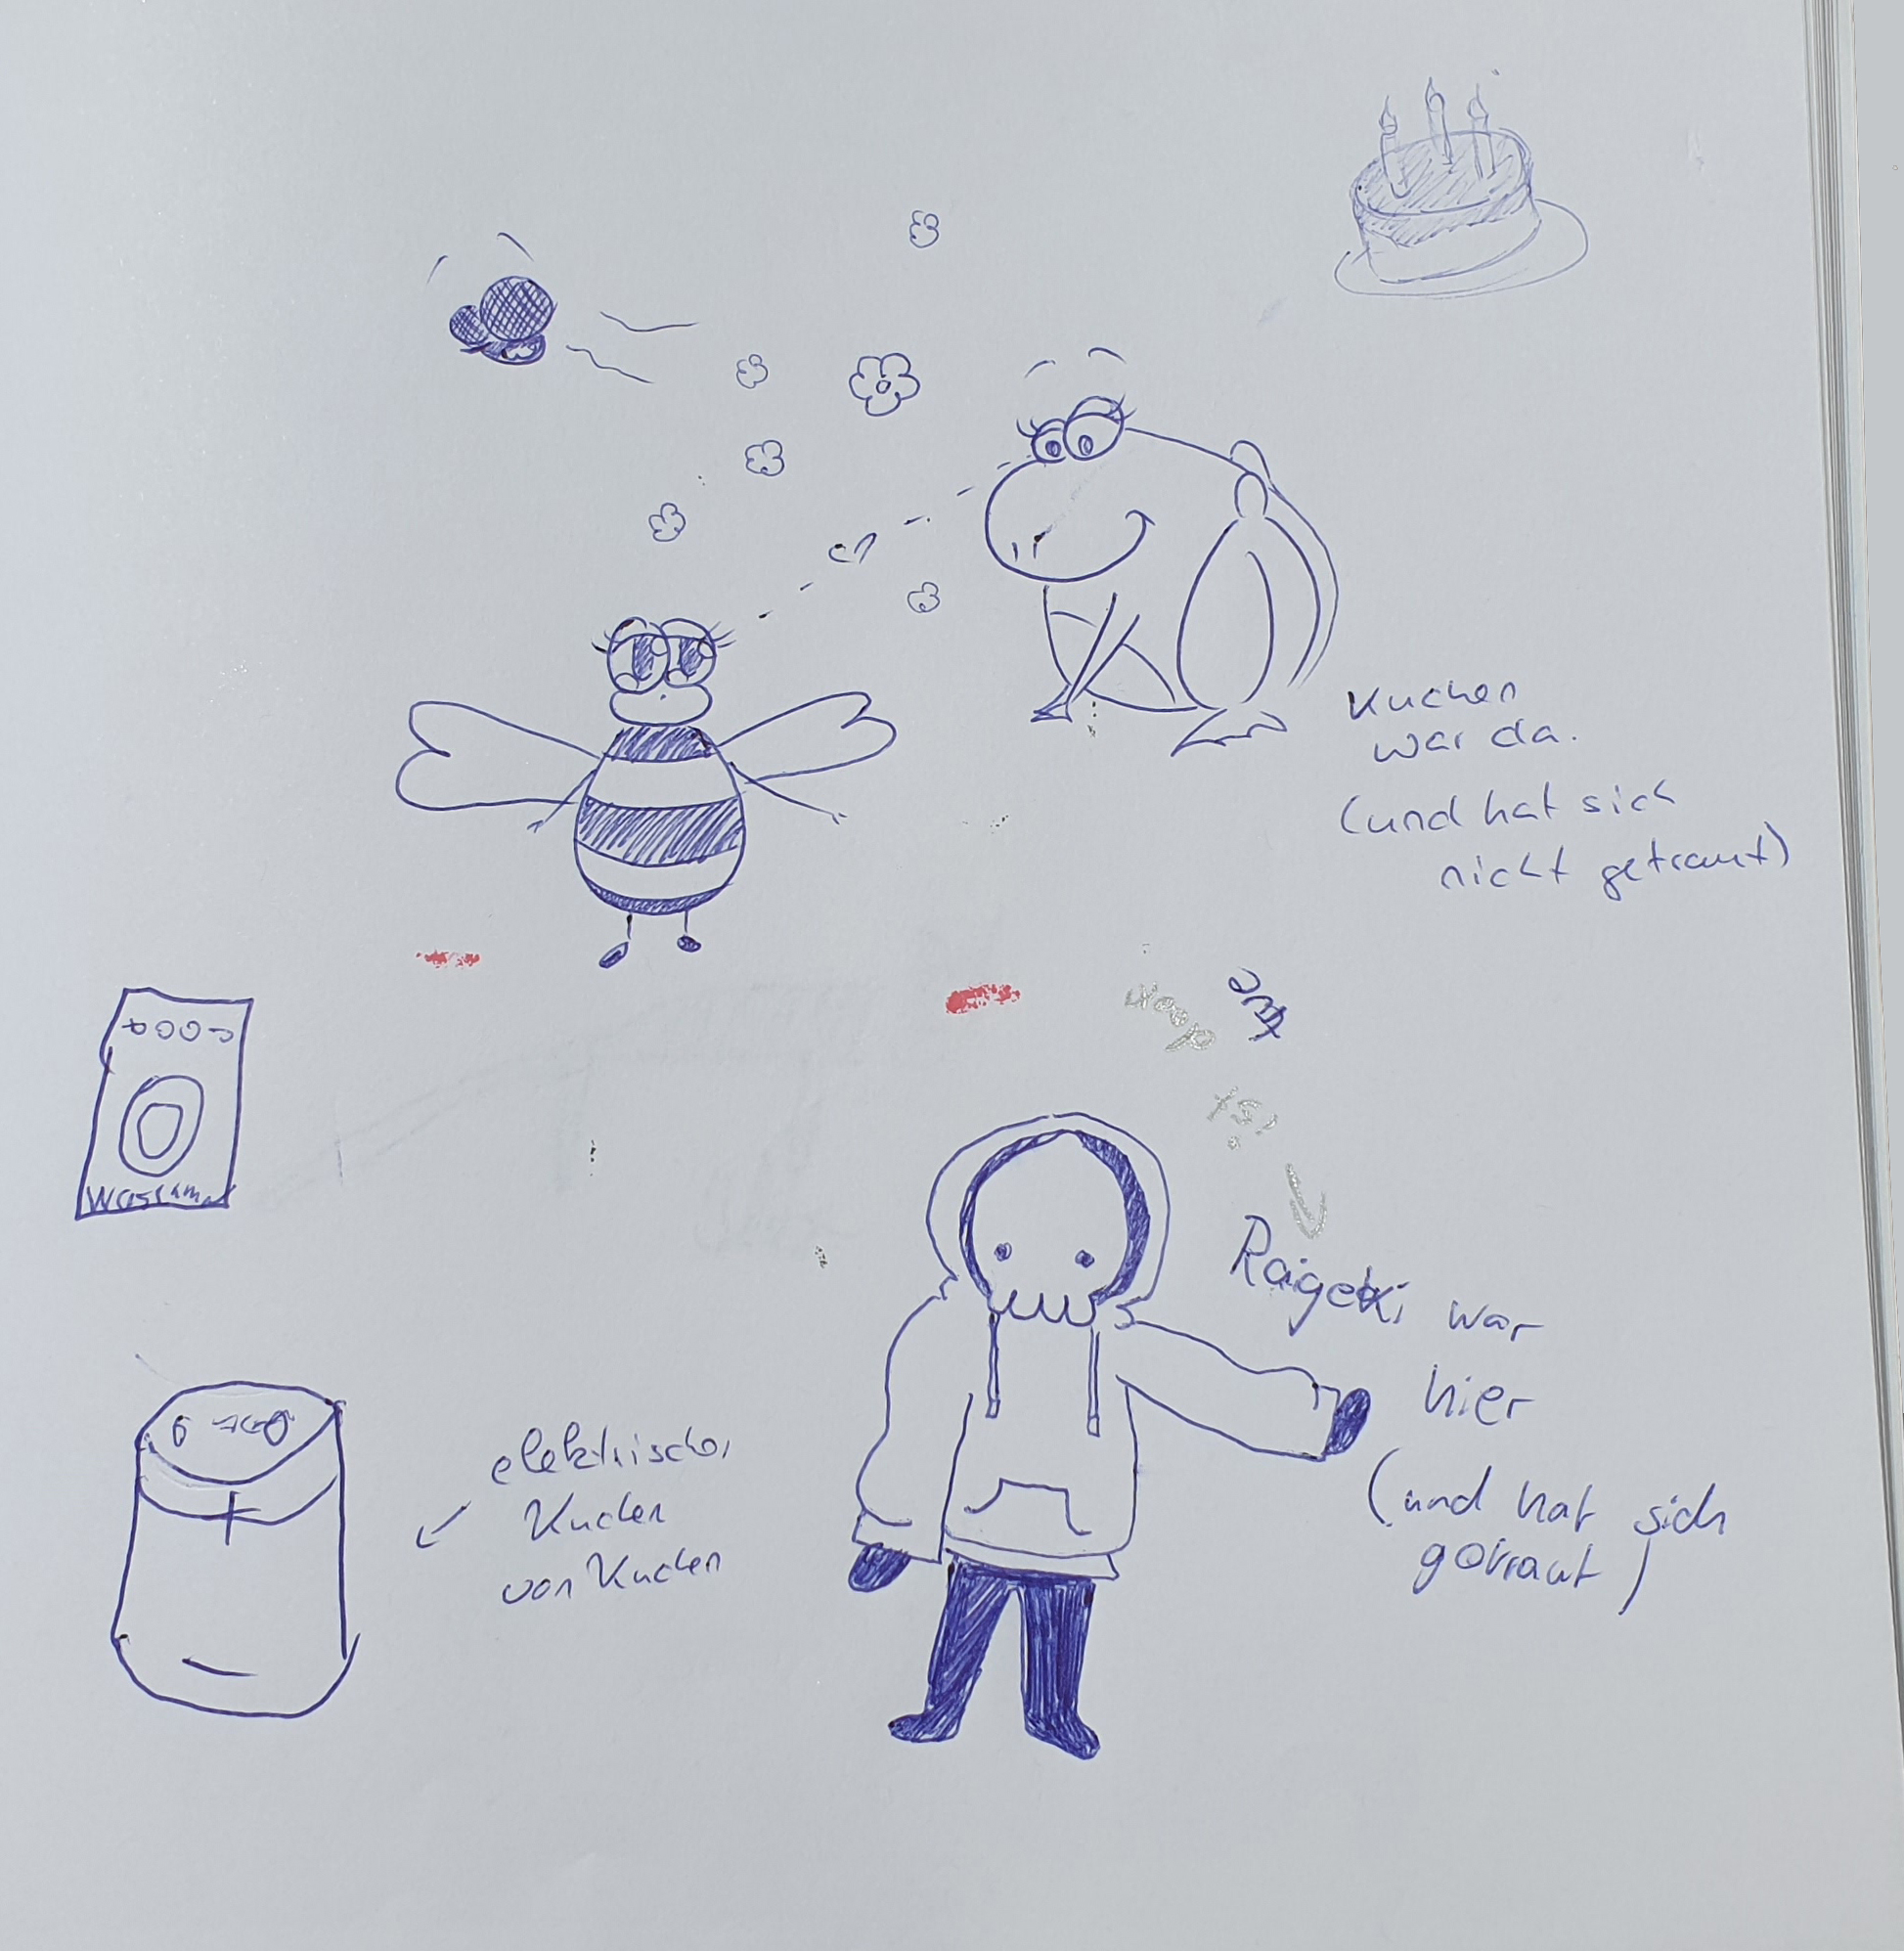 Kuchen
war da.
(und hat sich
nicht getraut)
doop
ist
Raigeki war
hier
(und hat sich
getraut)
elektrischer
Kuchen
von Kuchen